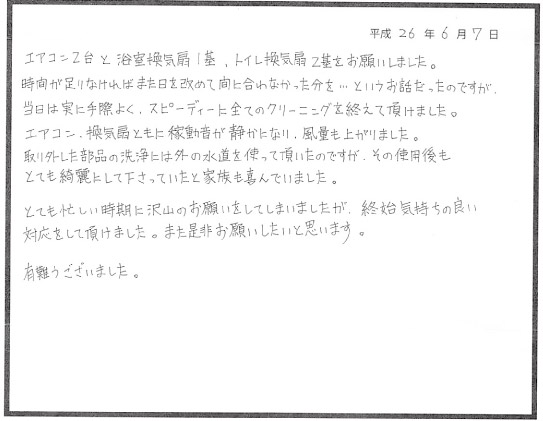 平成 26 年 6 月 7 日
エアコン2台と浴室換気扇1基、トイレ換気扇2基をお願いしました。
時間が足りなければまた日を改めて間に合わなかった分を…というお話だったのですが、
当日は実に手際よく、スピーディーに全てのクリーニングを終えて頂けました。
エアコン、換気扇ともに稼動音が静かになり、風量も上がりました。
取り外した部品の洗浄には外の水道を使って頂いたのですが、その使用後も
とても綺麗にして下さっていたと家族も喜んでいました。
とても忙しい時期に沢山のお願いをしてしまいましたが、終始気持ちの良い
対応をして頂けました。また是非お願いしたいと思います。
有難うございました。